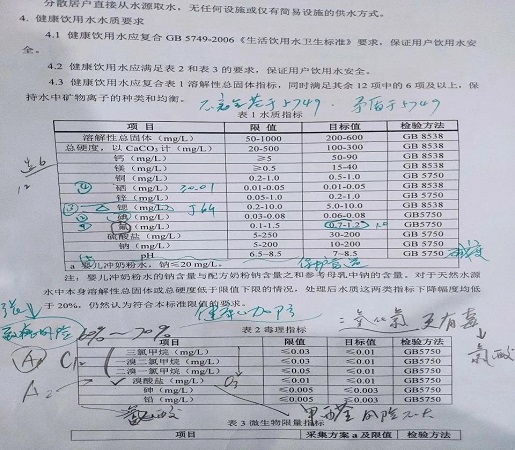 分散居户直接从水源取水，无任何设施或仅有简易设施的供水方式。
4. 健康饮用水水质要求
4.1 健康饮用水应复合 GB 5749-2006《生活饮用水卫生标准》要求，保证用户饮用水安全。
4.2 健康饮用水应满足表 2 和表 3 的要求，保证用户饮用水安全。
4.3 健康饮用水应复合表 1 溶解性总固体指标，同时满足其余 12 项中的 6 项及以上，保
持水中矿物离子的种类和均衡。
矛盾于5749
表 1 水质指标
项 目 限 值 目标值 检验方法
溶解性总固体（mg/L） 50-1000 200-600 GB 8538
总硬度，以 CaCO₃ 计（mg/L） 20-500 100-300 GB 8538
钙（mg/L） ≥5 50-90 GB 8538
镁（mg/L） ≥0.5 15-40 GB 8538
铜（mg/L） 0.2-1.0 0.5-1.0 GB5750
硒（mg/L） 0.01-0.05 0.01-0.05 GB 8538
锌（mg/L） 0.05-1.0 0.2-1.0 GB 8538
锶（mg/L） 0.2-10.0 5.0-10.0 GB 8538
碘（mg/L） 0.03-0.08 0.06-0.08 GB5750
氟（mg/L） 0.1-1.5 0.7-1.2 GB5750
硫酸盐（mg/L） 5-250 30-200 GB 5750
钠（mg/L） 5-200 10-200 GB 5750
pH 6.5-8.5 7-8.5 GB 5750
a 婴儿冲奶粉水，钠≤20 mg/L。
注：婴儿冲奶粉水的钠含量与配方奶粉钠含量之和参考母乳中钠的含量。对于天然水源
水中本身溶解性总固体或总硬度低于限值下限的情况，处理后水质这两类指标下降幅度均低
于 20%，仍然认为符合本标准限值的要求。
60%～70%
表 2 毒理指标
项 目 限值 目标值 检验方法
三氯甲烷（mg/L） ≤0.03 ≤0.01 GB5750
一溴二氯甲烷（mg/L） ≤0.03 ≤0.01 GB5750
二溴一氯甲烷（mg/L） ≤0.05 ≤0.01 GB5750
溴酸盐（mg/L） ≤0.01 ≤0.01 GB5750
砷（mg/L） ≤0.005 ≤0.003 GB5750
铅（mg/L） ≤0.005 ≤0.003 GB5750
甲醛风险不大
表 3 微生物限量指标
项目 采集方案 a 及限值 检验方法